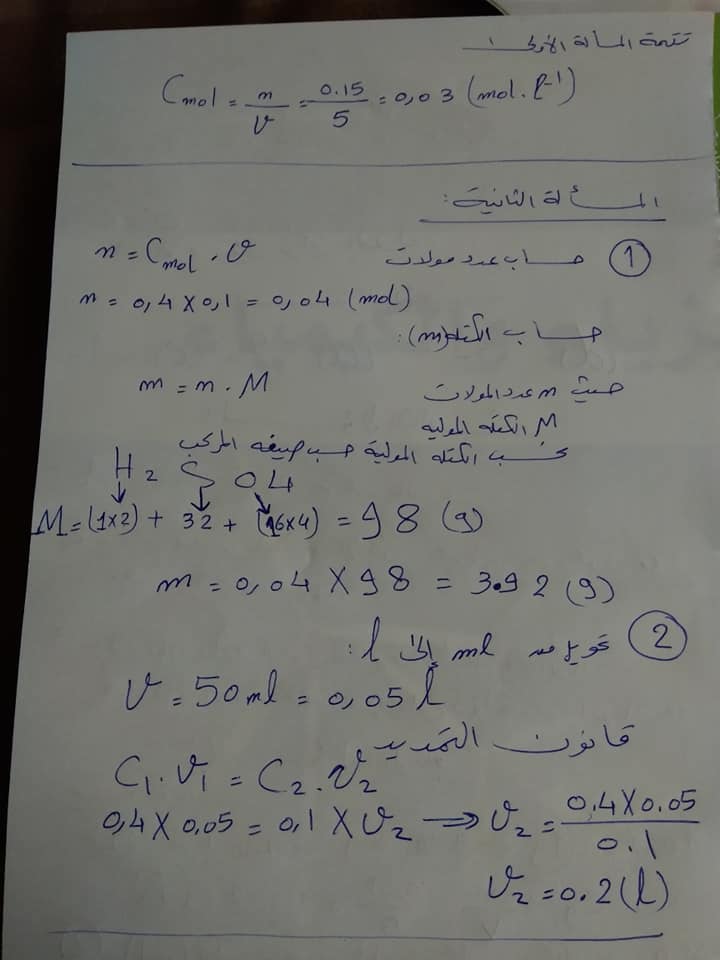 تتمة المسألة الأولى:
C mol = n/v = 0.15/5 = 0,03 (mol.l⁻¹)
المسألة الثانية:
① حساب عدد مولات n = C mol . v
n = 0,4 × 0,1 = 0,04 (mol)
حساب الكتلة (m):
m = n . M حيث n عدد المولات
M الكتلة المولية
نحسب الكتلة المولية حسب صيغة المركب
H₂ S O4
M = (1×2) + 32 + (16×4) = 98 (g)
m = 0,04 × 98 = 3.92 (g)
② تحويل من ml إلى l:
v = 50 ml = 0,05 l
قانون التمديد
C₁.v₁ = C₂.v₂
0,4 × 0,05 = 0,1 × v₂ ⟹ v₂ = 0,4 × 0.05 / 0.1
v₂ = 0.2 (l)